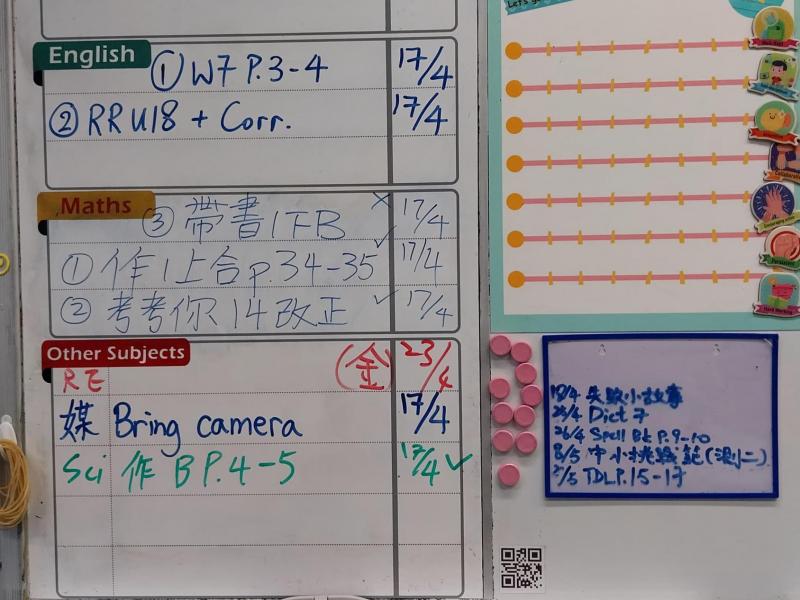 English
① W7 P.3-4 17/4
② RR U18 + Corr. 17/4
Maths
③ 帶書1下B × 17/4
① 作1上合p.34-35 ✓ 17/4
② 考考你14改正 ✓ 17/4
Other Subjects
RE (金) 23/4
媒 Bring camera 17/4
Sci 作 B P.4-5 17/4 ✓
18/4 失敗小故事
25/4 Dict 7
26/4 Spell Bk P.9-10
8/5 中小挑戰篇(測二)
TDL P.15-17